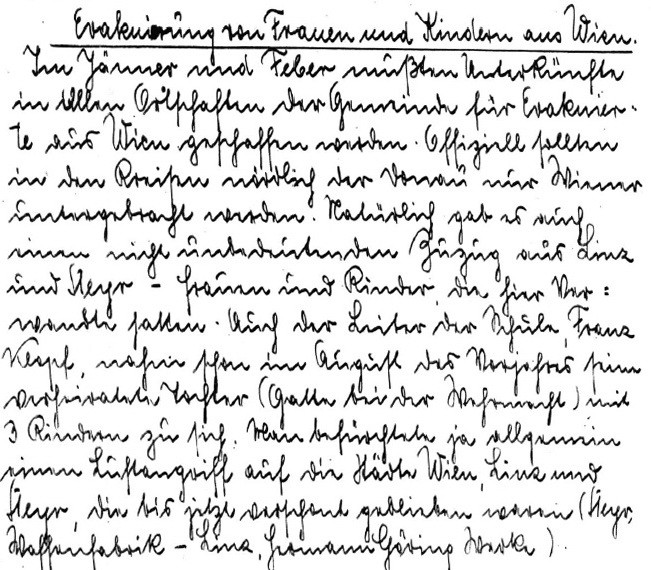 Evakuierung von Frauen und Kindern aus Wien.
Im Jänner und Feber mußten Unterkünfte
in allen Ortschaften der Gemeinde für Evakuier-
te aus Wien geschaffen werden. Offiziell sollten
in den Kreisen nördlich der Donau nur Wiener
untergebracht werden. Natürlich gab es auch
einen nicht unbedeutenden Zuzug aus Linz
und Steyr - Frauen und Kinder, die hier Ver:
wandte hatten. Auch der Leiter der Schule, Franz
Klopf, nahm schon im August des Vorjahres seine
verheiratete Tochter (Gatte bei der Wehrmacht) mit
3 Kindern zu sich. Man befürchtete ja allgemein
einen Luftangriff auf die Städte Wien, Linz und
Steyr, die bis jetzt verschont geblieben waren (Steyr,
Waffenfabrik - Linz, Hermann Göring Werke).